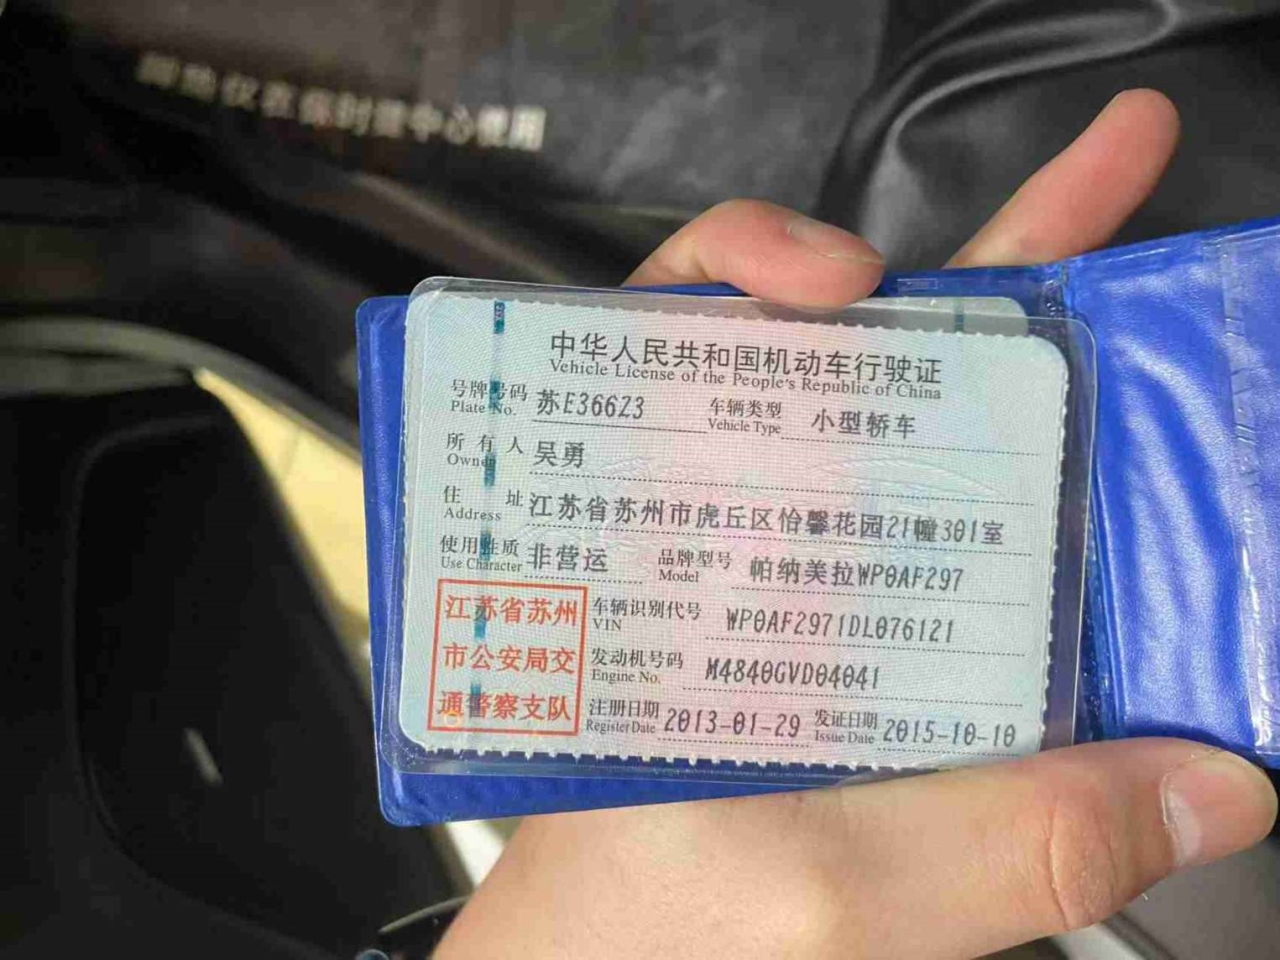 仅在保时捷中心使用
中华人民共和国机动车行驶证
Vehicle License of the People's Republic of China
号牌号码 苏E366Z3 车辆类型 小型轿车
Plate No. Vehicle Type
所有人 吴勇
Owner
住址 江苏省苏州市虎丘区怡馨花园21幢301室
Address
使用性质 非营运 品牌型号 帕纳美拉WP0AF297
Use Character Model
江苏省苏州 车辆识别代号 WP0AF2971DL076121
VIN
市公安局交 发动机号码 M4840GVD04041
Engine No.
通警察支队 注册日期 2013-01-29 发证日期 2015-10-10
Register Date Issue Date